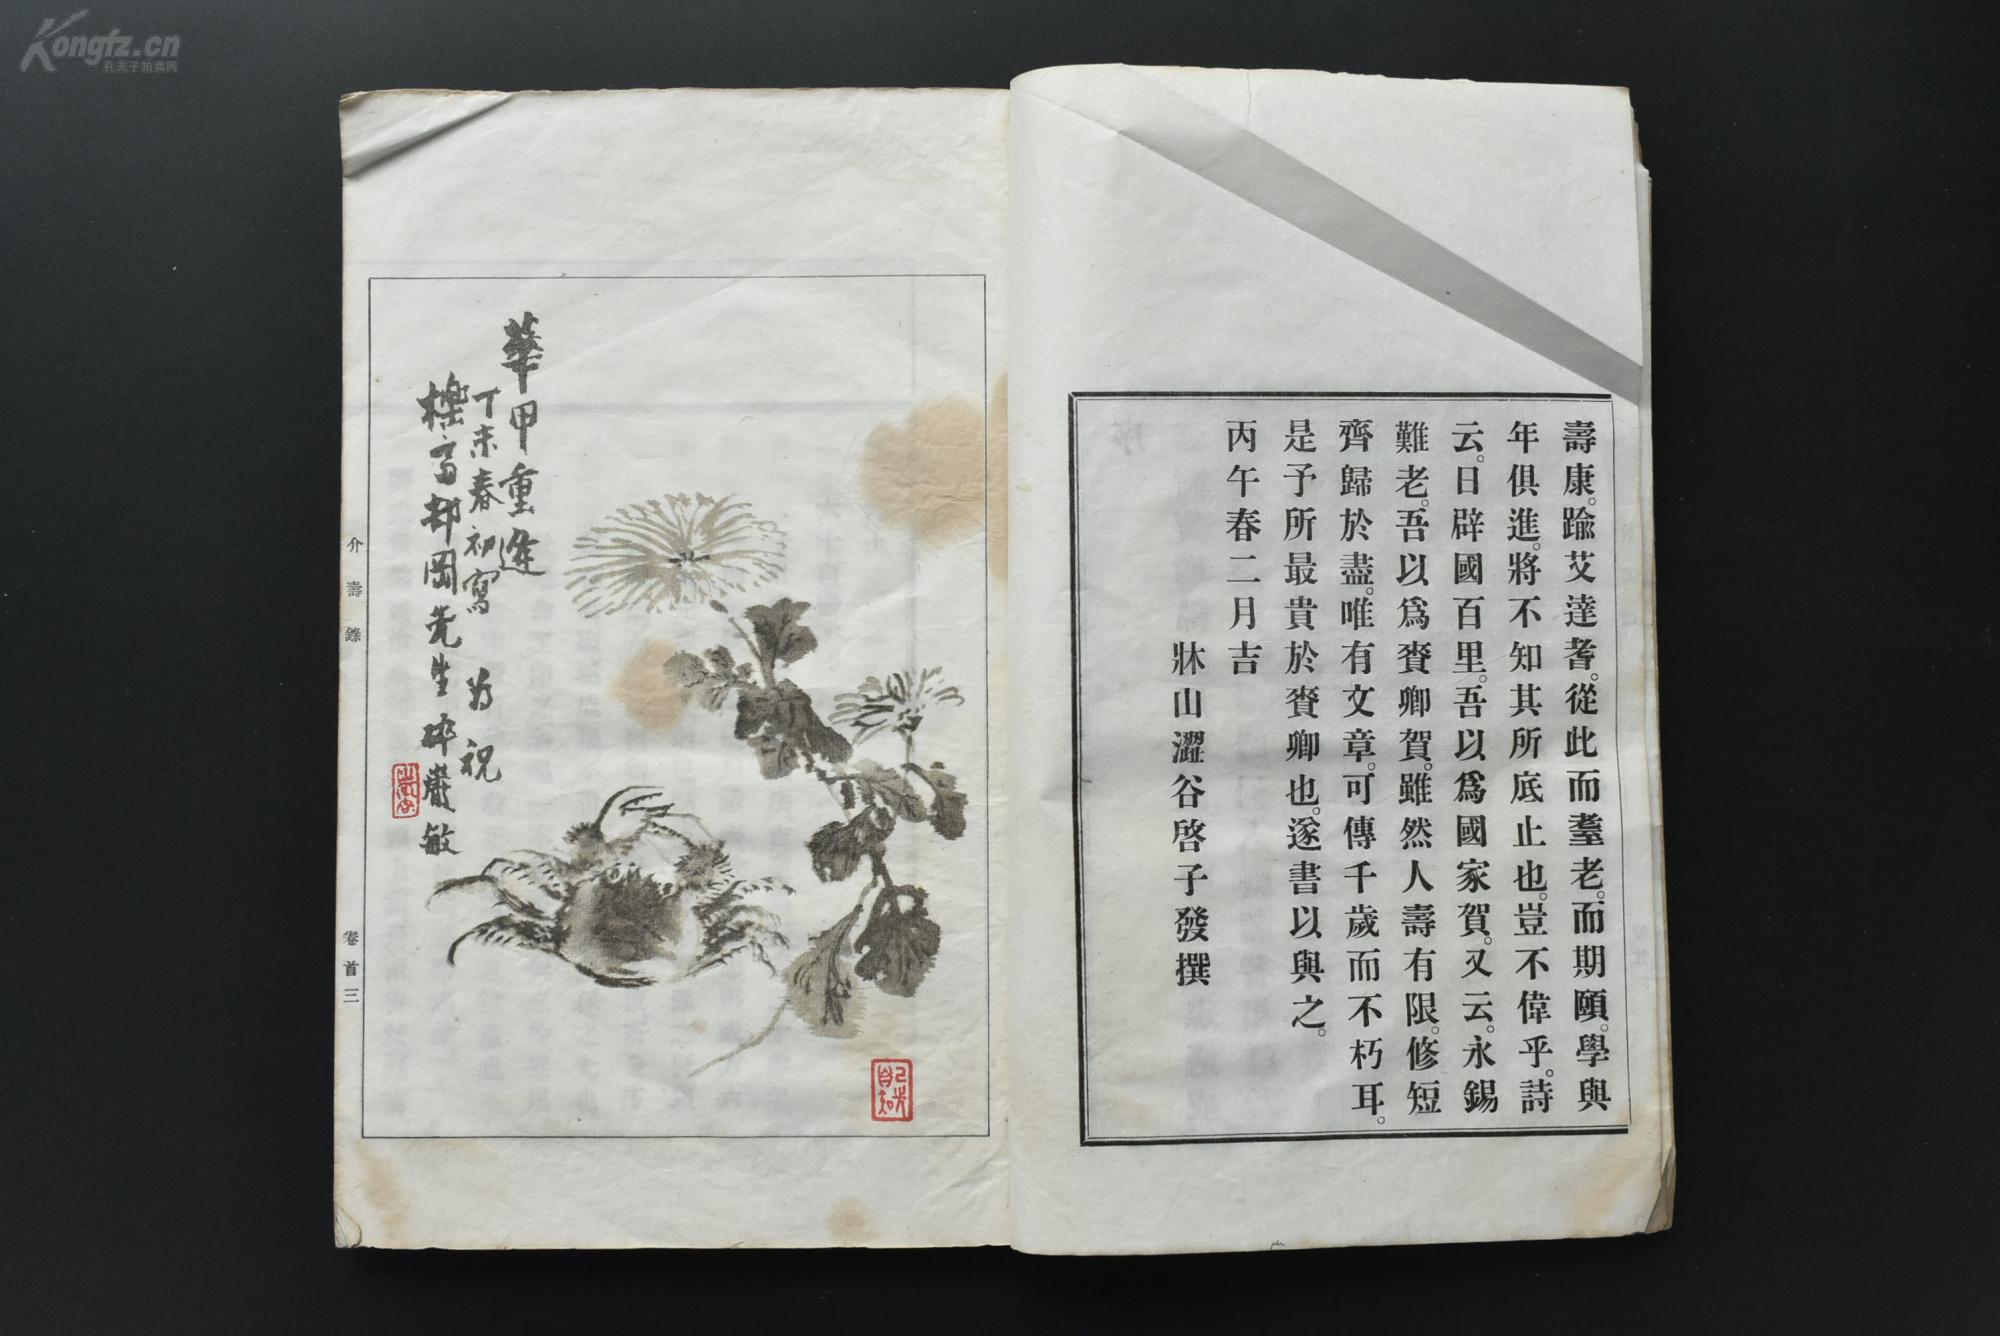 Kongfz.cn
孔夫子拍卖网
壽康。踰艾達耆。從此而耋老。而期頤。學與
年俱進。將不知其所底止也。豈不偉乎。詩
云。日辟國百里。吾以爲國家賀。又云。永錫
難老。吾以爲賚卿賀。雖然人壽有限。修短
齊歸於盡。唯有文章。可傳千歲而不朽耳。
是予所最貴於賚卿也。遂書以與之。
丙午春二月吉
牀山澀谷啓子發撰
華甲重逢
丁未春初寫 爲祝
先生
介壽錄
卷首三